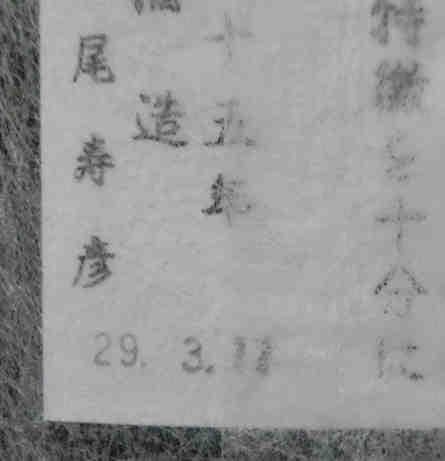 特徴を十分に
十五年
造
尾寿彦
29. 3.11